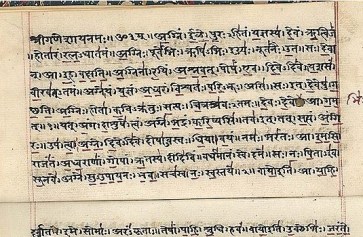 श्रीगणेशायनमः॥ॐ॥अग्निं।ईळे।पुरःऽहितं।यज्ञस्य।देवं।ऋत्विजं
।होतारं।रत्नऽधातमं।अग्निः।पूर्वेभिः।ऋषिऽभिः।ईड्यः।नूतनैः।उत।सः।देवा
न्।आ।इह।वक्षति।अग्निना।रयिं।अश्नवत्।पोषं।एव।दिवेऽदिवे।यशसं।
वीरवत्ऽतमं।अग्ने।यं।यज्ञं।अध्वरं।विश्वतः।परिऽभूः।असि।सः।इत्।देवेषु।ग
च्छति।अग्निः।होता।कविऽक्रतुः।सत्यः।चित्रश्रवःऽतमः।देवः।देवेभिः।आ।गम
त्॥१॥यत्।अंग।दाशुषे।त्वं।अग्ने।भद्रं।करिष्यसि।तव।इत्।तत्।सत्यं।अंगि
रः।उप।त्वा।अग्ने।दिवेऽदिवे।दोषाऽवस्तः।धिया।वयं।नमः।भरंतः।आ।इमसि।
राजंतं।अध्वराणां।गोपां।ऋतस्य।दीदिविं।वर्धमानं।स्वे।दमे।सः।नः।पिताऽइव।
सूनवे।अग्ने।सुऽउपायनः।भव।सचस्व।नः।स्वस्तये॥२॥वायोइति।आ।याहि।
दर्शत।इमे।सोमाः।अरंऽकृताः।तेषां।पाहि।श्रुधि।हवं।वायोइति।उक्थेभिः।जरंते